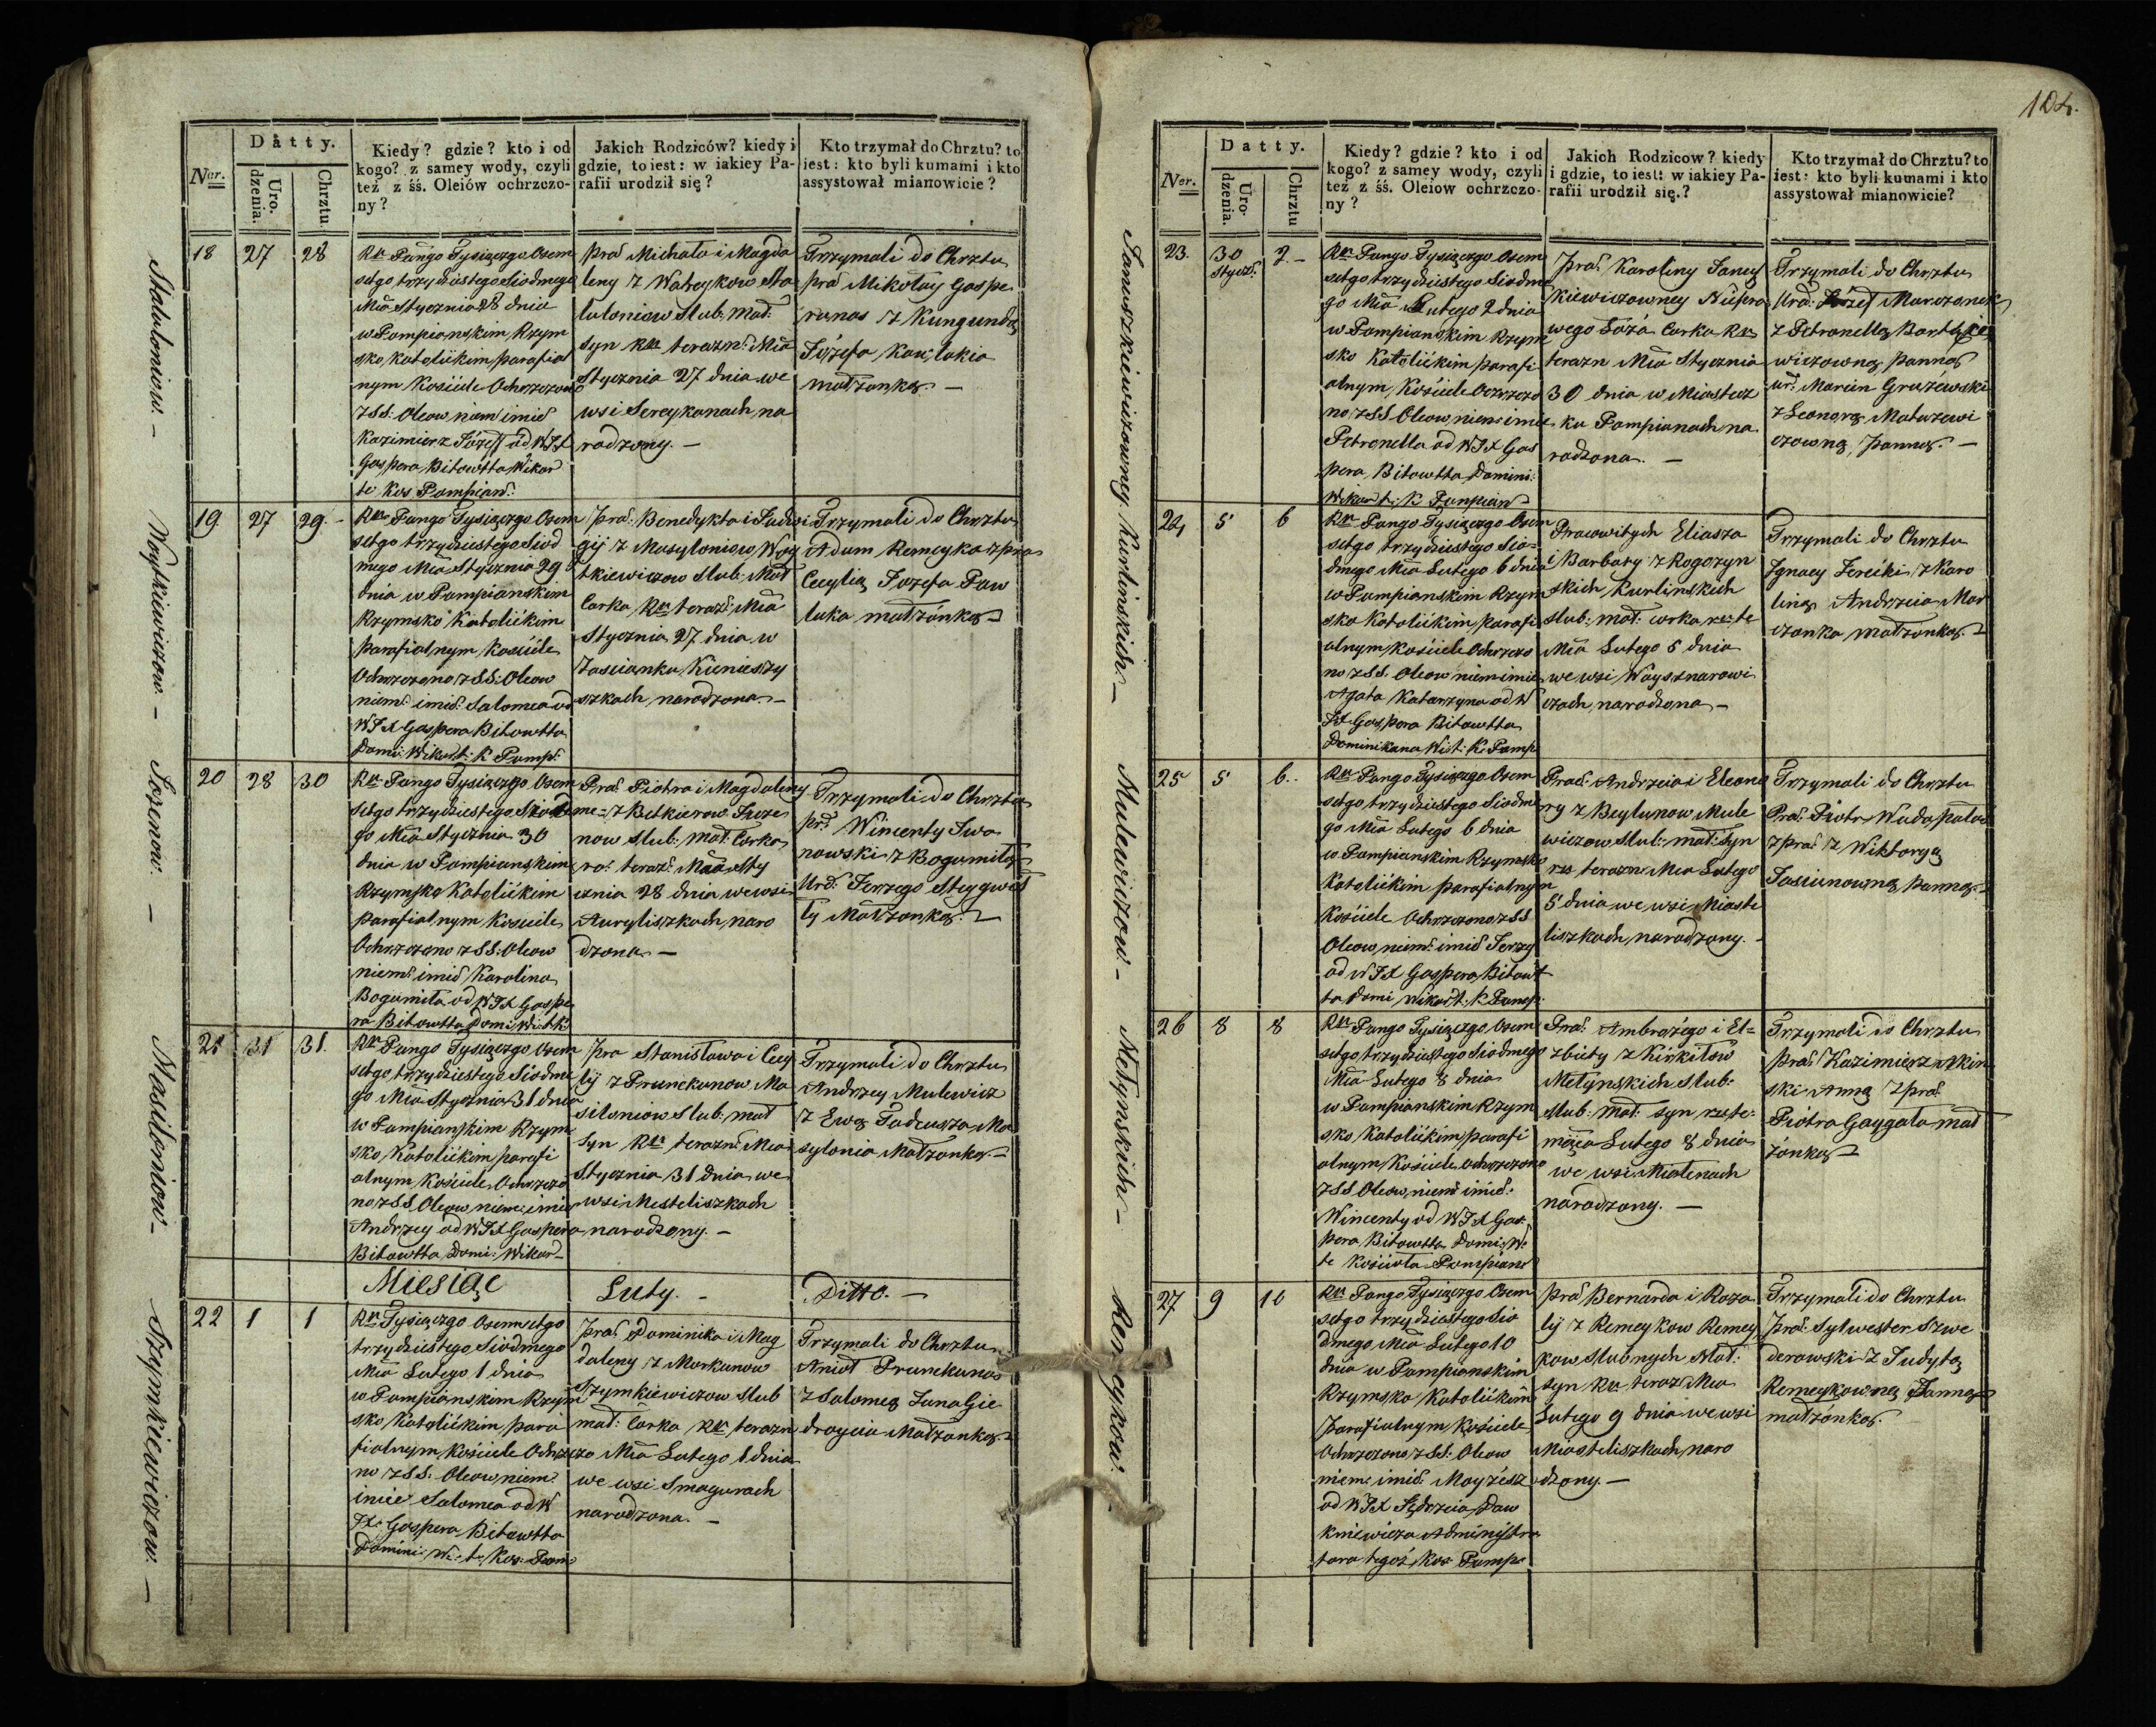 Ner.
Datty.
Uro.
dzenia.
Chrztu.
Kiedy? gdzie? kto i od
kogo? z samey wody, czyli
też z śś. Oleiów ochrzczo-
ny?
Jakich Rodziców? kiedy i
gdzie, to iest: w iakiey Pa-
rafii urodził się?
Kto trzymał do Chrztu? to
iest: kto byli kumami i kto
assystował mianowicie?
Staluloniow. -
18
27
28
Rku Pango Tysiączgo Osem
setgo trzydziestego Siodmego
Mia Stycznia 28 dnia
w Pompianskim Rzym
sko, katolickim, parafial
nym Kościele Ochrzczono
z SS: Oleow niem imie
Kazimierz Józeff od WJX
Gaspera Bitowtta Wikar
te Kos Pompian:
prac Michała i Magda
leny z Wateykow Sta
luloniow Slub. mał:
syn Rku terazn: Mia
Stycznia 27 dnia we
wsi Sereykanach na
rodzony. -
Trzymali do Chrztu
prac Mikołay Gaspe
ranas z Kungundą
Józefa Kawlakia
małżonką. -
Woytkiewiczow. -
19
27
29. -
Rku Pango Tysiączgo Osem
setgo trzydziestego Siod
mego Mia Stycznia 29
dnia w Pompianskim
Rzymsko Katolickim
parafialnym Kościele
Ochrzczono z SS: Oleow
niem: imie Salomea od
WJX Gaspera Bitowtta
Domi: Wikar t: K Pomp:
Prac: Benedykta i Judwi
gij z Masyloniow Woy
tkiewiczow slub: Mał
Corka Rku teraz: Mia
Stycznia 27 dnia w
Zascianku Kienieszy
szkach narodzona. -
Trzymali do Chrztu
Adam Remeyka z pra
Cecylią Jozefa Paw
luka małżonką -
Jozenow. -
20
28
30
Rku Pango Tysiączgo Osem
setgo trzydziestego Siodme
go Mia Stycznia 30
dnia w Pompianskim
Rzymsko Katolickim
parafialnym Kosciele
Ochrzczono z SS: Oleow
niem: imie Karolina
Bogumiła od WJX Gaspe
ra Bitowtta Domi Wi: tk
Prac Piotra i Magdaleny
z Butkierow Juze
now Slub: mał. Corka
ro: teraz: Mia Sty
cznia 28 dnia we wsi
Auryliszkach naro
dzona. -
Trzymali do Chrztu
pr: Wincenty Iwa
nowski z Bogumiłą
Urd: Jerzego Steygwił
ły Małżonką. -
Masiloniow -
21
31
31.
Rku Pango Tysiączgo Osem
setgo trzydziestego Siodme
go Mia Stycznia 31 dnia
w Pompianskim Rzym
sko Katolickim parafi
alnym Kościele Ochrzczo
no z SS Oleow niem: imie
Andrzey od WJX Gaspera
Bitowtta Domi: Wikar-
pra Stanisława i Cecy
lij z Prunckunow Ma
siloniow Slub: mał
Syn Rku terazn: Mia
Stycznia 31 dnia we
wsi Mesteliszkach
narodzony. -
Trzymali do Chrztu
Andrzey Mulewicz
z Ewą Tadeusza Ma
sylonia Małżonką -
Miesiąc Luty. - Ditto. -
Szymkiewiczow. -
22
1
1
Rku Tysiączgo Osemsetgo
trzydziestego Siodmego
Mia Lutego 1 dnia
w Pompianskim Rzym
sko Katolickim, para
fialnym Kościele Ochrzczo
no z SS: Oleow, niem:
imie Salomea od W
JX Gaspera Bitowtta
Domini: Wi: te Kos: Pom:
Prac Dominika i Mag
daleny z Morkunow
Szymkiewiczow Slub
mał: Corka Rku terazn
Mia Lutego 1 dnia
we wsi Smagurach
narodzona. -
Trzymali do Chrztu
Anioł Prunckunas
z Salomeą Jana Gie
draycia Małżonką -
104.
Ner.
Datty.
Uro-
dzenia.
Chrztu
Kiedy? gdzie? kto i od
kogo? z samey wody, czyli
też z śś. Oleiów ochrzczo-
ny?
Jakich Rodzicow? kiedy
i gdzie, to iest: w iakiey Pa-
rafii urodził się.?
Kto trzymał do Chrztu? to
iest: kto byli kumami i kto
assystował mianowicie?
Januszkiewiczowney
23.
30
Stycz:
2 -
Rku Pango Tysiączgo Osem
setgo trzydziestego Siodme
go Mia Lutego 2 dnia
w Pompianskim Rzym
sko Katolickim parafi
alnym, Kościele Ochrzczo
no z SS Oleow, niem imie
Petronella od WJX Gas
pera Bitowtta Domini:
Wikar t: K Pompian
prac Karoliny Janusz
kiewiczowney Niepra
wego Łoża Corka Rku
terazn Mia Stycznia
30 dnia w Miastecz
ku Pompianach na
rodzona. -
Trzymali do Chrztu
Urd: Józef Marczonek
z Petronellą Bartkie
wiczowną panną
ur: Marcin Grużewski
z Leonorą Matuzewi
czowną panną. -
Kurlinskich. -
24
5
6
Rku Pango Tysiączgo Osem
setgo trzydziestego Sio=
dmego Mia Lutego 6 dnia
w Pompianskim Rzym
sko Katolickim, parafi
alnym, Kościele Ochrzczo
no z SS. Oleow niem imie
Agata Katarzyna od W
JX Gaspera Bitowtta
Dominikana Wi t: K Pomp
Pracowitych Eliasza
i Barbary z Rogozyn
skich Kurlinskich
slub: mał: corka ro: te
Mia Lutego 5 dnia
we wsi Waysznarowi
czach narodzona -
Trzymali do Chrztu
Ignacy Zerecki z Karo
liną Andrzeia Mar
czonka małżonką. -
Mulewiczow -
25
5
6..
Rku Pango Tysiączgo Osem
setgo trzydziestego Siodme
go Mia Lutego 6 dnia
w Pompianskim Rzymsko
Katolickim parafialnym
Kościele Ochrzczono z SS
Oleow, niem: imie Jerzy
od WJX Gaspera Bitowt
ta Domi Wikar t: k Pomp:
Prac: Andrzeia i Eleono
ry z Beylunow Mule
wiczow Slub: mał: Syn
ro terazn Mia Lutego
5 dnia we wsi Miaste
liszkach narodzony. -
Trzymali do Chrztu
Prac: Piotr Wadapałas
z prac z Wiktoryą
Jasiunowną panną -
Metynskich -
26
8
8
Rku Pango Tysiączgo Osem
setgo trzydziestego Siodmego
Mia Lutego 8 dnia
w Pompianskim Rzym
sko, Katolickim parafi
alnym Kościele Ochrzczono
z SS Oleow, niem imie:
Wincenty od WJX Gas
pera Bitowtta Domi: Wi:
te Kościoła Pompian
Prac: Ambrożego i El=
zbiety z Kirkiłow
Metynskich Slub:
slub: mał: syn ro: te:
miąca Lutego 8 dnia
we wsi Miatenach
narodzony. -
Trzymali do Chrztu
prac Kazimierz
ski Anną z prac
Piotra Gaygala mał
żonką -
Remeykow. -
27
9
10
Rku Pango Tysiączgo Osem
setgo trzydziestego Sio
dmego Mia Lutego 10
dnia w Pompianskim
Rzymsko Katolickim
Parafialnym Kościele
Ochrzczono z SS: Oleow
niem: imie: Mayżesz
od WJX Jędrzeia Daw
kniewicza Administra
tora tegoż Kos: Pomp:
prac Bernarda i Roza
lij z Remeykow Remey
kow Slubnych Mał:
syn Rku teraz: Mia
Lutego 9 dnia we wsi
Miasteliszkach naro
dzony. -
Trzymali do Chrztu
Prac: Sylwester Szwe
derowski z Judytą
Remeykowną Panną
małżonką.